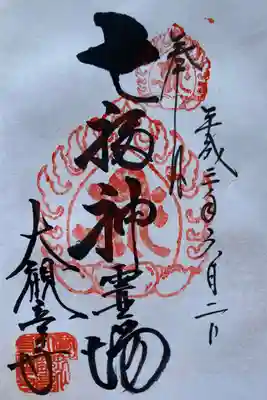 平成年六月二日
奉拝
七福神霊場
大観音寺